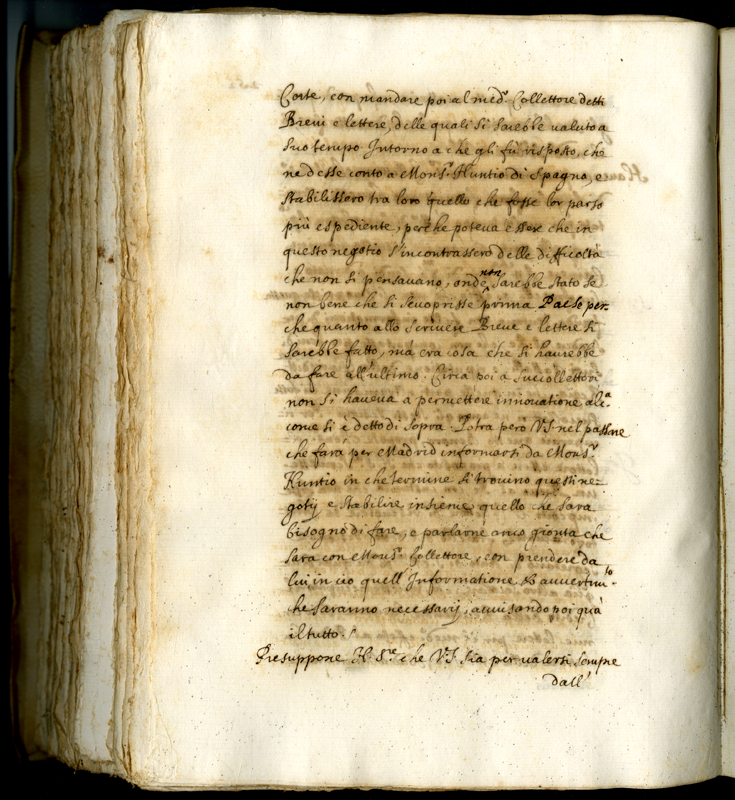 Corte, con mandare poi al med.º Collettore detti
Brevi e lettere, delle quali si sarebbe valuto a
suo tempo Intorno a che gli fù risposto, che
ne desse conto a Mons.r Nuntio di Spagna, e
stabilissero tra loro quello che fosse lor parso
più espediente, perche poteva essere che in
questo negotio s'incontrassero delle difficoltà
che non si pensavano, onde non sarebbe stato se
non bene che si scuoprisse prima Paese per-
che quanto allo scrivere Breve e lettere si
sarebbe fatto, mà era cosa che si haurebbe
da fare all'ultimo. Circa poi a succollettori
non si haveva a permettere innovatione alc.a
come si è detto di sopra. Potra però V.S. nel passare
che farà per Madrid informarsi da Mons.r
Nuntio in che termine si trovino questi ne-
gotij e stabilire insieme quello che sara
bisogno di fare, e parlarne anco gionta che
sara con Mons.r Collettore, con prendere da
lui in cio quell'Informatione et avvertim.to
che saranno necessarij, avvisando poi quà
il tutto.
Presuppone N. S.re che V.S. sia per valersi sempre
dall'